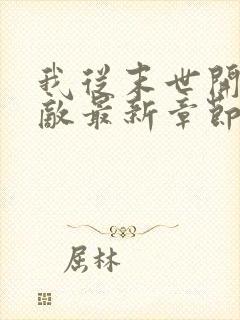 我從末世開
敵最新章節
屈林